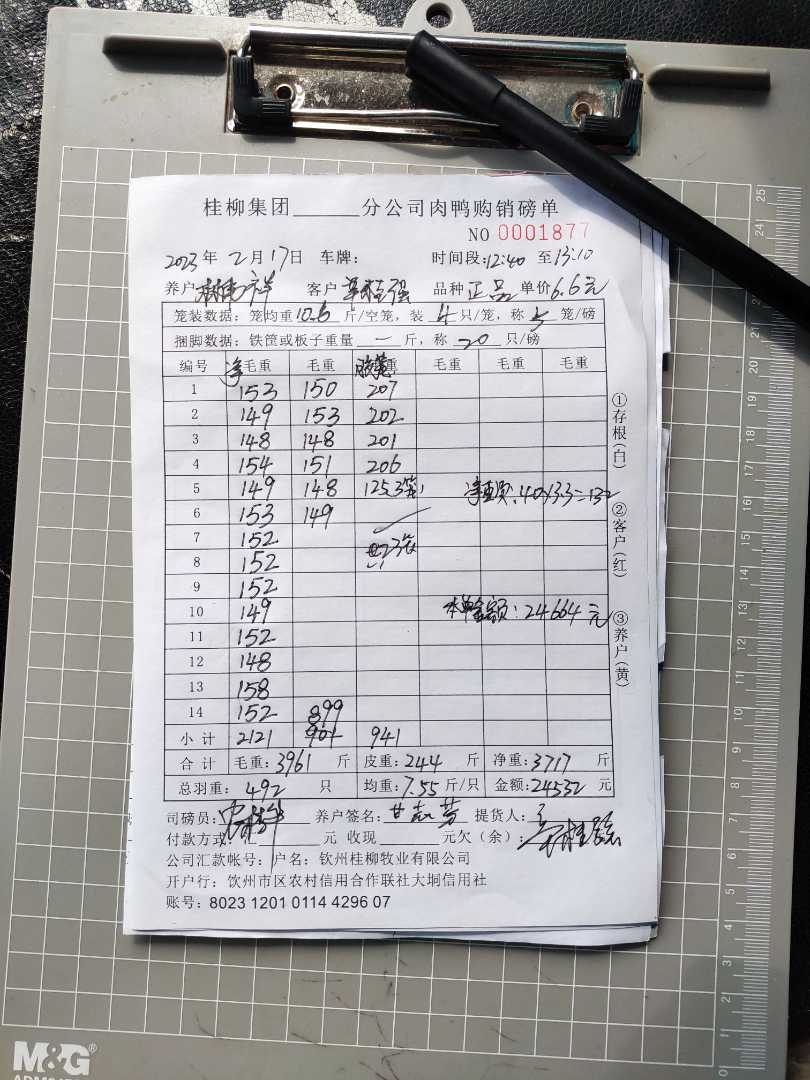 桂柳集团______分公司肉鸭购销磅单
NO 0001877
2023年2月17日 车牌: 时间段:12:40 至13:10
养户: 客户 品种 正品 单价6.6元
笼装数据: 笼均重10.6斤/空笼, 装4只/笼, 称5笼/磅
捆脚数据: 铁筐或板子重量一斤, 称20只/磅
编号 净毛重 毛重 毛重 毛重 毛重
1 153 150 207
2 149 153 202
3 148 148 201
4 154 151 206
5 149 148 125.3 :40×3.3=132
6 153 149
7 152
8 152
9 152
10 149 本单金额:24664元
11 152
12 148
13 158
14 152 899
小计 2121 901 941
合计 毛重:3961斤 皮重:244斤 净重:3717斤
总羽重: 492只 均重:7.55斤/只 金额:24532元
司磅员: 养户签名: 提货人:
付款方式: 汇______元 收现______元欠(余):
公司汇款帐号: 户名: 钦州桂柳牧业有限公司
开户行: 饮州市区农村信用合作联社大垌信用社
账号: 8023 1201 0114 4296 07
①存根(白)
②客户(红)
③养户(黄)
M&G